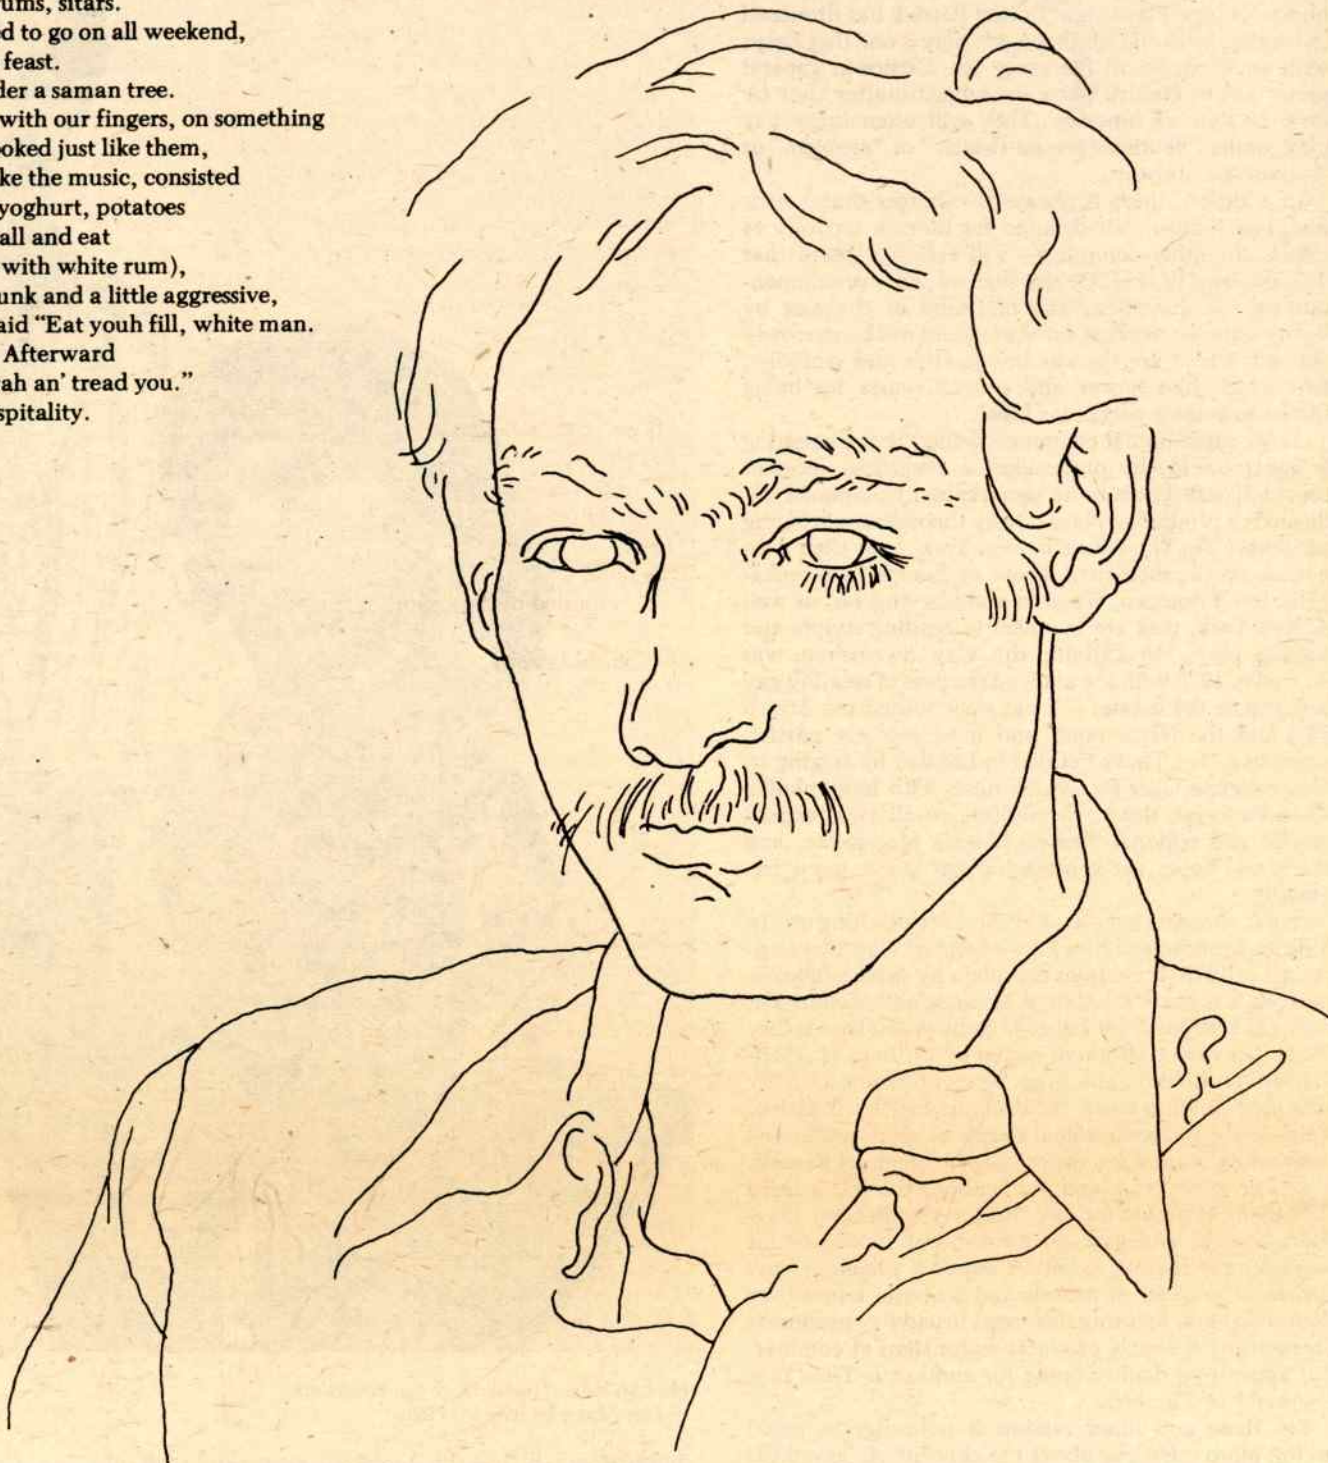 sitars.
to go on all weekend,
feast.
a saman tree.
with our fingers, on something
just like them,
the music, consisted
yoghurt, potatoes
all and eat
with white rum),
and a little aggressive,
"Eat youh fill, white man.
Afterward
an' tread you."